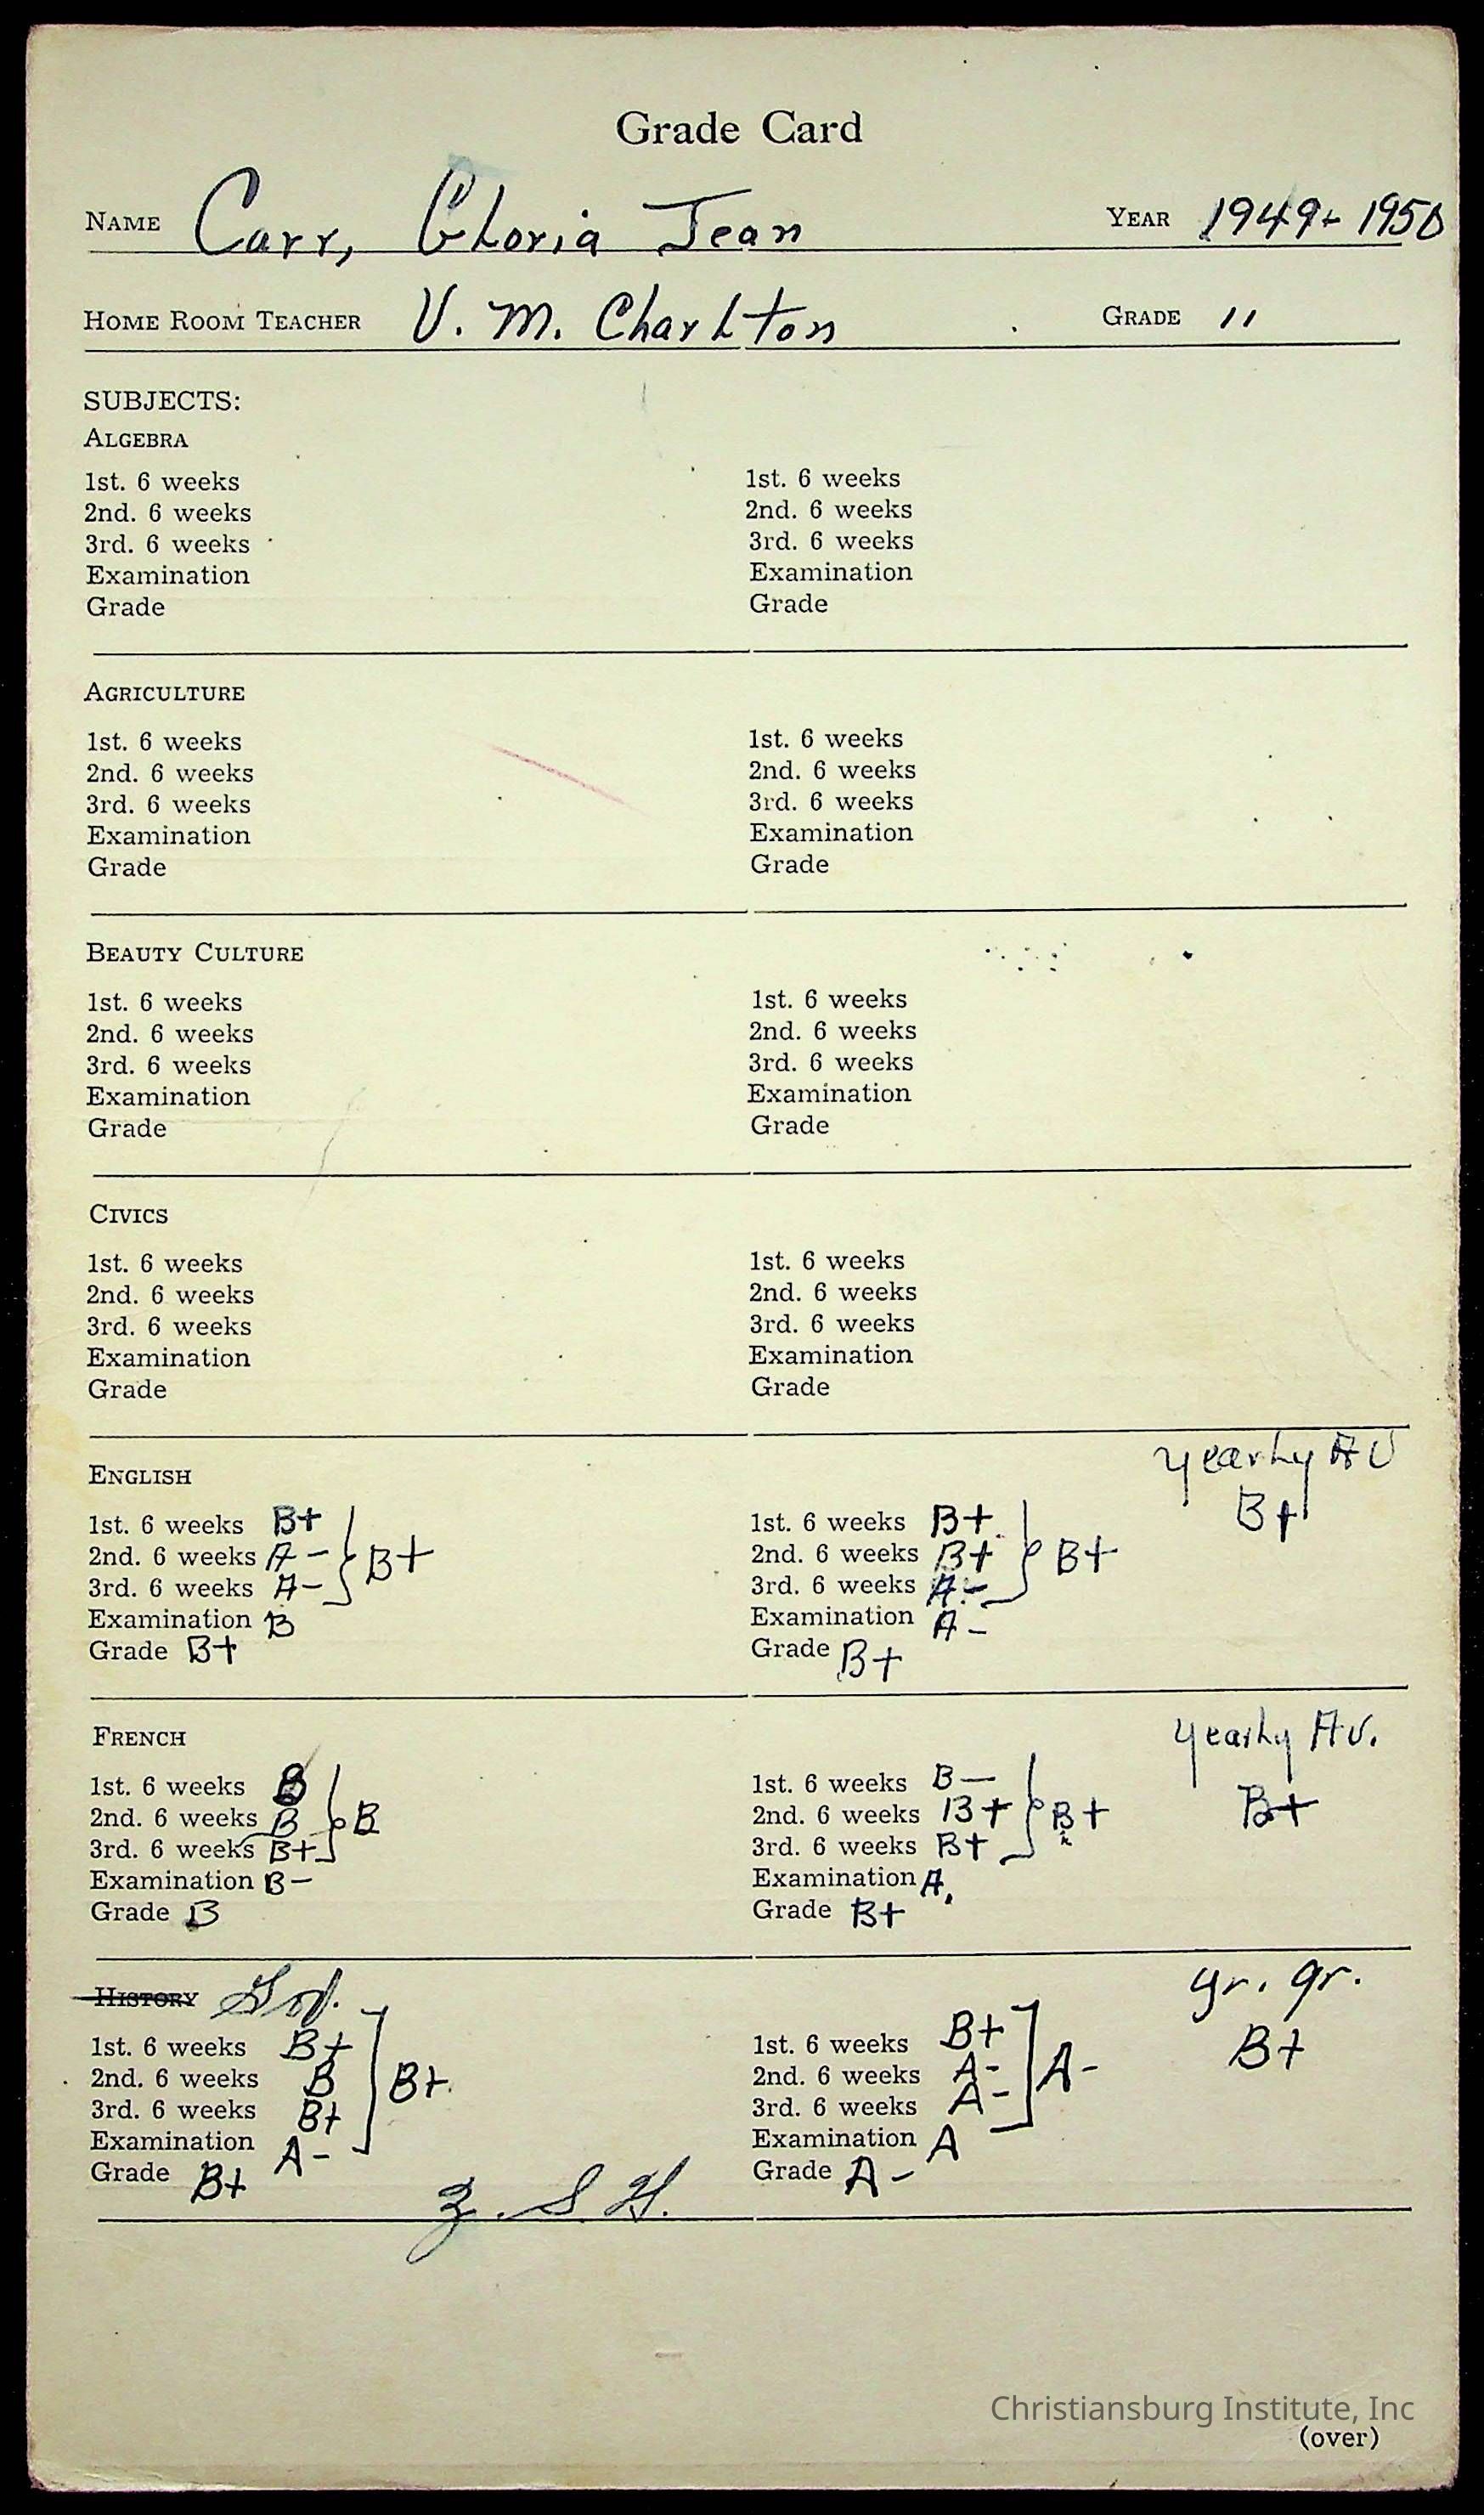 Grade Card
NAME Carr, Gloria Jean YEAR 1949-1950
HOME ROOM TEACHER V. M. Charlton GRADE 11
SUBJECTS:
ALGEBRA
1st. 6 weeks 1st. 6 weeks
2nd. 6 weeks 2nd. 6 weeks
3rd. 6 weeks 3rd. 6 weeks
Examination Examination
Grade Grade
AGRICULTURE
1st. 6 weeks 1st. 6 weeks
2nd. 6 weeks 2nd. 6 weeks
3rd. 6 weeks 3rd. 6 weeks
Examination Examination
Grade Grade
BEAUTY CULTURE
1st. 6 weeks 1st. 6 weeks
2nd. 6 weeks 2nd. 6 weeks
3rd. 6 weeks 3rd. 6 weeks
Examination Examination
Grade Grade
CIVICS
1st. 6 weeks 1st. 6 weeks
2nd. 6 weeks 2nd. 6 weeks
3rd. 6 weeks 3rd. 6 weeks
Examination Examination
Grade Grade
ENGLISH yearly AV
1st. 6 weeks B+ 1st. 6 weeks B+ B+
2nd. 6 weeks A- B+ 2nd. 6 weeks B+ B+
3rd. 6 weeks A- 3rd. 6 weeks A-
Examination B Examination A-
Grade B+ Grade B+
FRENCH yearly Av.
1st. 6 weeks B 1st. 6 weeks B-
2nd. 6 weeks B B 2nd. 6 weeks B+ B+ B+
3rd. 6 weeks B+ 3rd. 6 weeks B+
Examination B- Examination A
Grade B Grade B+
HISTORY Gov. yr. gr.
1st. 6 weeks B+ 1st. 6 weeks B+ B+
2nd. 6 weeks B B+ 2nd. 6 weeks A- A-
3rd. 6 weeks B+ 3rd. 6 weeks A-
Examination A- Examination A
Grade B+ Grade A-
Z. S. H.
Christiansburg Institute, Inc
(over)